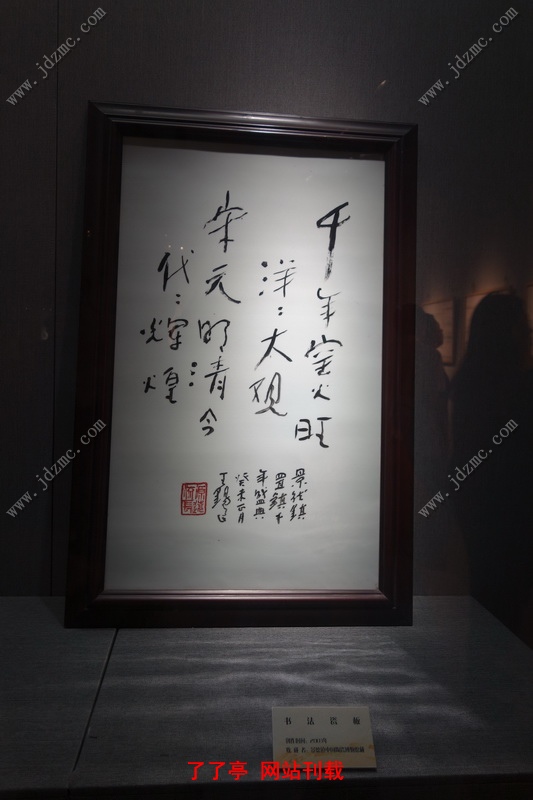 千年窑火旺
洋洋大观
宋元明清今
代代辉煌
景德鎮
置鎮千
年盛典
癸未正月
王錫良
书法瓷板
www.jdzmc.com
www.jdzmc.com
www.jdzmc.com
www.jdzmc.com
了了亭 网站刊载